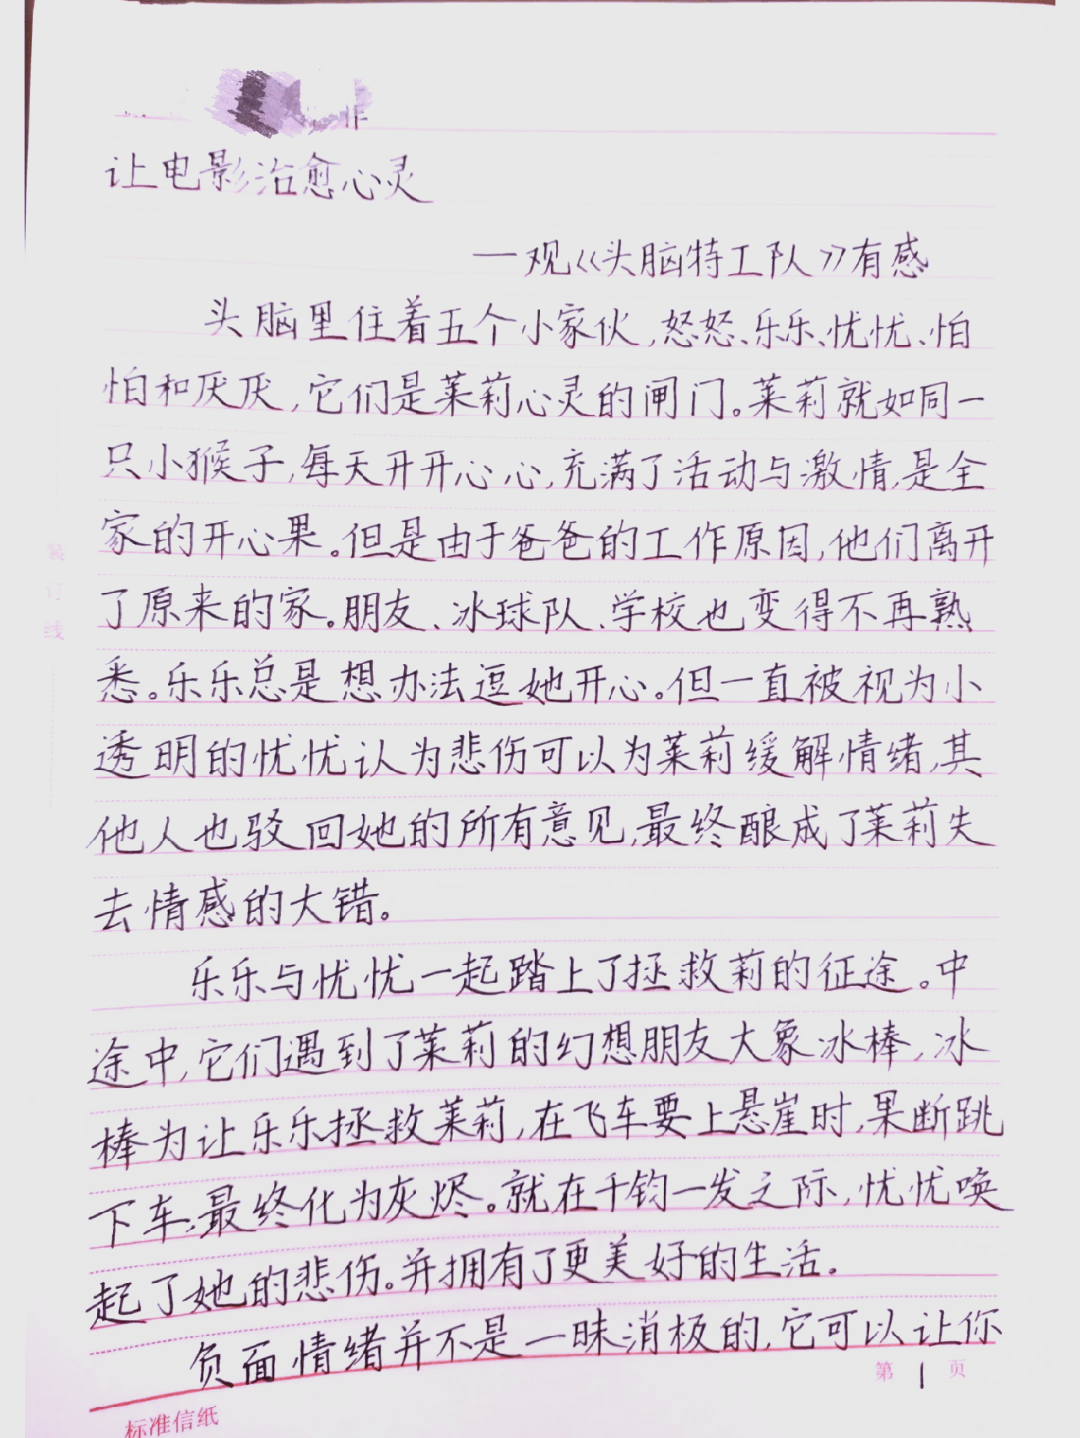 作
让电影治愈心灵
一观《头脑特工队》有感
头脑里住着五个小家伙,怒怒、乐乐、忧忧、怕
怕和厌厌,它们是茱莉心灵的闸门。茱莉就如同一
只小猴子,每天开开心心,充满了活动与激情,是全
家的开心果。但是由于爸爸的工作原因,他们离开
了原来的家。朋友、冰球队、学校也变得不再熟
悉。乐乐总是想办法逗她开心。但一直被视为小
透明的忧忧认为悲伤可以为茱莉缓解情绪,其
他人也驳回她的所有意见,最终酿成了茱莉失
去情感的大错。
乐乐与忧忧一起踏上了拯救莉的征途。中
途中,它们遇到了茱莉的幻想朋友大象冰棒,冰
棒为让乐乐拯救茱莉,在飞车要上悬崖时,果断跳
下车,最终化为灰烬。就在千钧一发之际,忧忧唤
起了她的悲伤。并拥有了更美好的生活.
负面情绪并不是一昧消极的,它可以让你
第 1 页
标准信纸
装订线